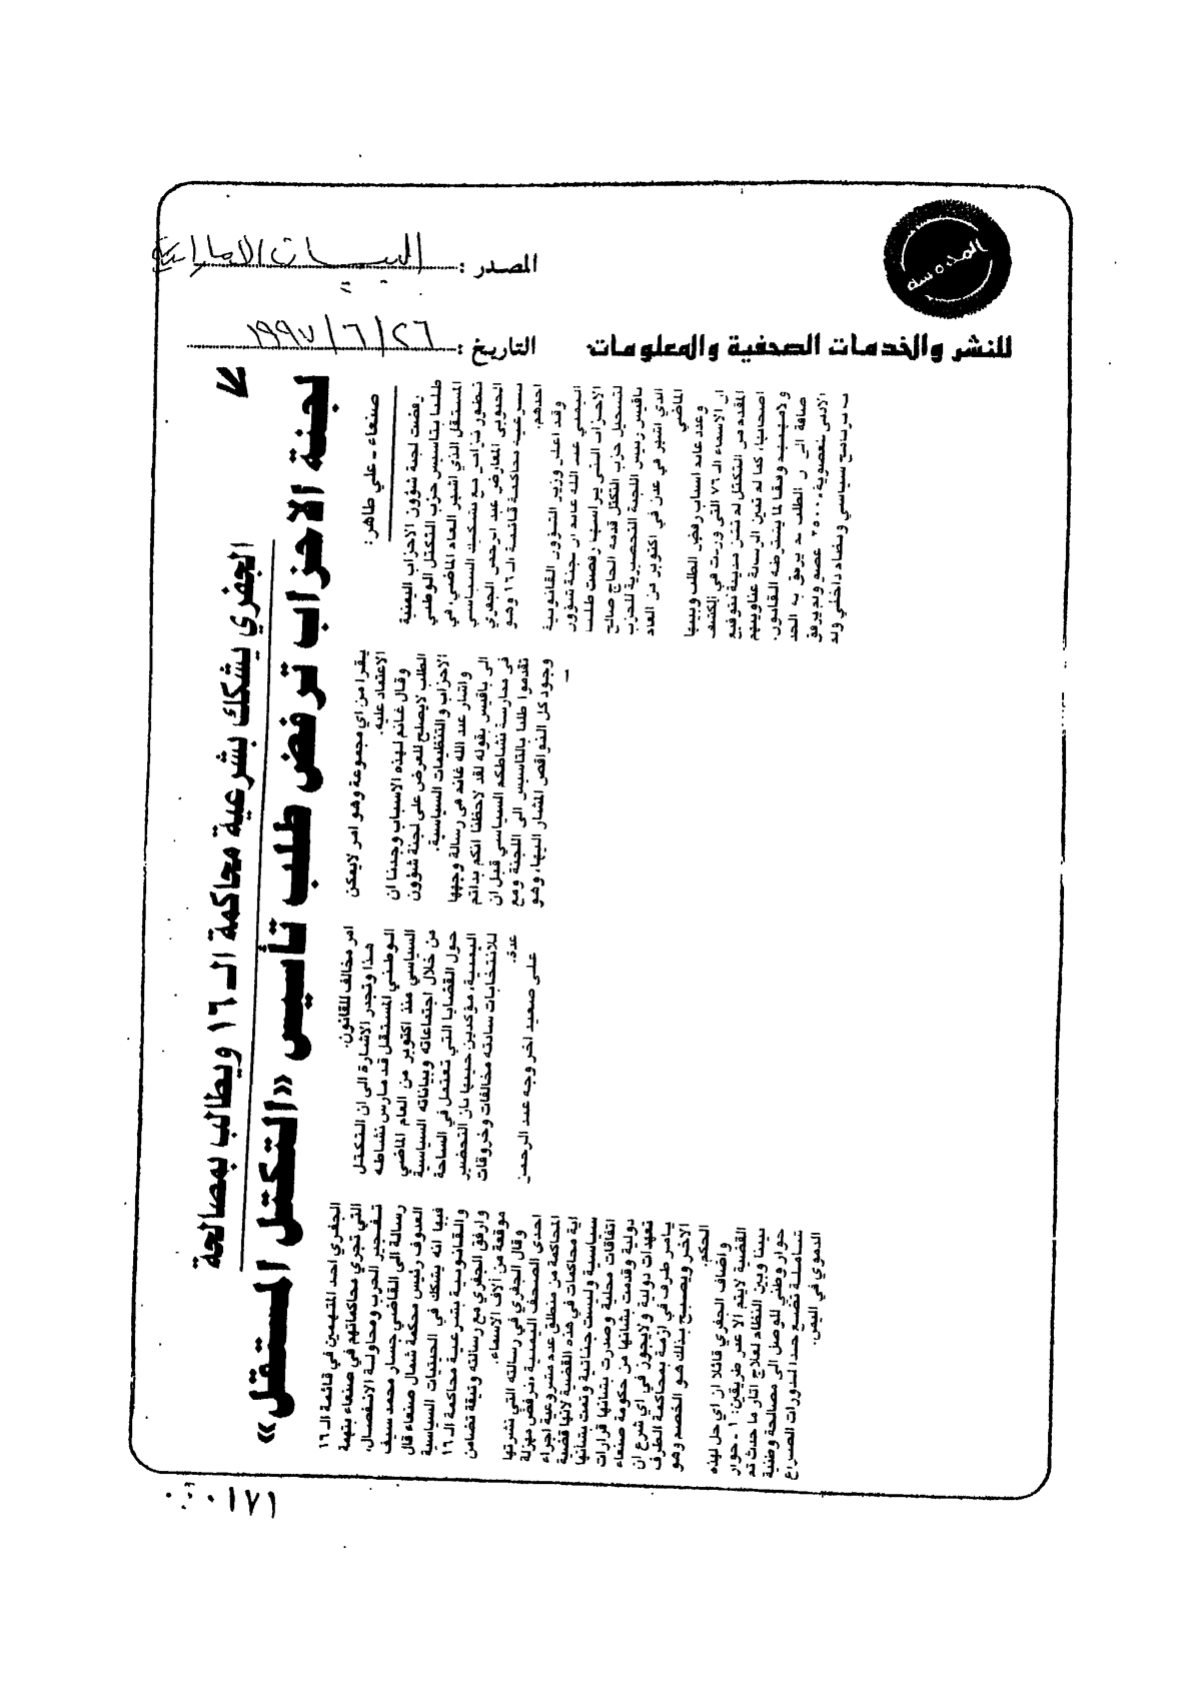 المصدر : البيان الاماراتية
التاريخ : ٢٦/٦/١٩٩٧
للنشر والخدمات الصحفية والمعلومات
الجفري يشكك بشرعية محاكمة الـ ١٦ ويطالب بمصالحة
لجنة الاحزاب ترفض طلب تأسيس «التكتل المستقل»
صنعاء ـ علي طاهر:
رفضت لجنة شؤون الاحزاب اليمنية
طلبا بتأسيس حزب التكتل الوطني
المستقل الذي اشهر العام الماضي، في
تطور تزامن مع تشكيك السياسي
الجنوبي المعارض عبد الرحمن الجفري
بشرعية محاكمة قائمة الـ ١٦ وهو
احدهم.
وقد اعلن وزير الشؤون القانونية
اليمني عبد الله غانم ان لجنة شؤون
الاحزاب التي يرأسها رفضت طلبا
لتسجيل حزب التكتل قدمه الحاج صالح
باقيس رئيس اللجنة التحضيرية للحزب
الذي اشهر في عدن في اكتوبر من العام
الماضي
وعدد غانم اسباب رفض الطلب وبينها
ان الاسماء الـ ٧٦ التي وردت في الكشف
المقدم من التكتل لم تقترن بتوقيع
اصحابها، كما لم تبين الرسالة عناوينهم
ولامهنهم وفقا لما يشترطه القانون.
الادنى لعضوية ٢٥٠٠ عضو ولم يرفق
به برنامج سياسي ونظام داخلي ولم
يقرا من اي مجموعة وهو امر لايمكن
الاعتماد عليه.
وقال غانم لهذه الاسباب وجدنا ان
الطلب لايصلح للعرض على لجنة شؤون
الاحزاب والتنظيمات السياسية.
واشار عبد الله غانم في رسالة وجهها
الى باقيس بقوله لقد لاحظنا انكم بدأتم
في ممارسة نشاطكم السياسي قبل ان
تقدموا طلبا بالتأسيس الى اللجنة ومع
وجود كل النواقص المشار اليها، وهو
امر مخالف للقانون.
هذا وتجدر الاشارة الى ان التكتل
الوطني المستقل قد مارس نشاطه
السياسي منذ اكتوبر من العام الماضي
من خلال اجتماعاته وبياناته السياسية
حول القضايا التي تعتمل في الساحة
اليمنية، مؤكدين حينها بان التحضير
للانتخابات سادته مخالفات وخروقات
عدة.
على صعيد اخر وجه عبد الرحمن
الجفري احد المتهمين في قائمة الـ ١٦
التي تجري محاكمتهم في صنعاء بتهمة
تفجير الحرب ومحاولة الانفصال،
رسالة الى القاضي جسار محمد سيف
العدوف رئيس محكمة شمال صنعاء قال
فيها انه يشكك في الحيثيات السياسية
والقانونية بشرعية محاكمة الـ ١٦
وارفق الجفري مع رسالته وثيقة تضامن
موقعة من الاف الاسماء.
وقال الجفري في رسالته التي نشرتها
احدى الصحف اليمنية نرفض مهزلة
المحاكمة من منطلق عدم مشروعية اجراء
اية محاكمات في هذه القضية لانها قضية
سياسية وليست جنائية وتمت بشأنها
اتفاقات محلية وصدرت بشأنها قرارات
دولية وقدمت بشأنها من حكومة صنعاء
تعهدات دولية ولايجوز في اي شرع ان
يأمر طرف في ازمة بمحاكمة الطرف
الاخر ويصبح بذلك هو الخصم وهو
الحكم.
واضاف الجفري قائلا ان اي حل لهذه
القضية لايتم الا عن طريقين: ١ ـ حوار
بيننا وبين النظام لعلاج اثار ما حدث ثم
حوار وطني للوصل الى مصالحة وطنية
شاملة تضع حدا لدورات الصراع
الدموي في اليمن.